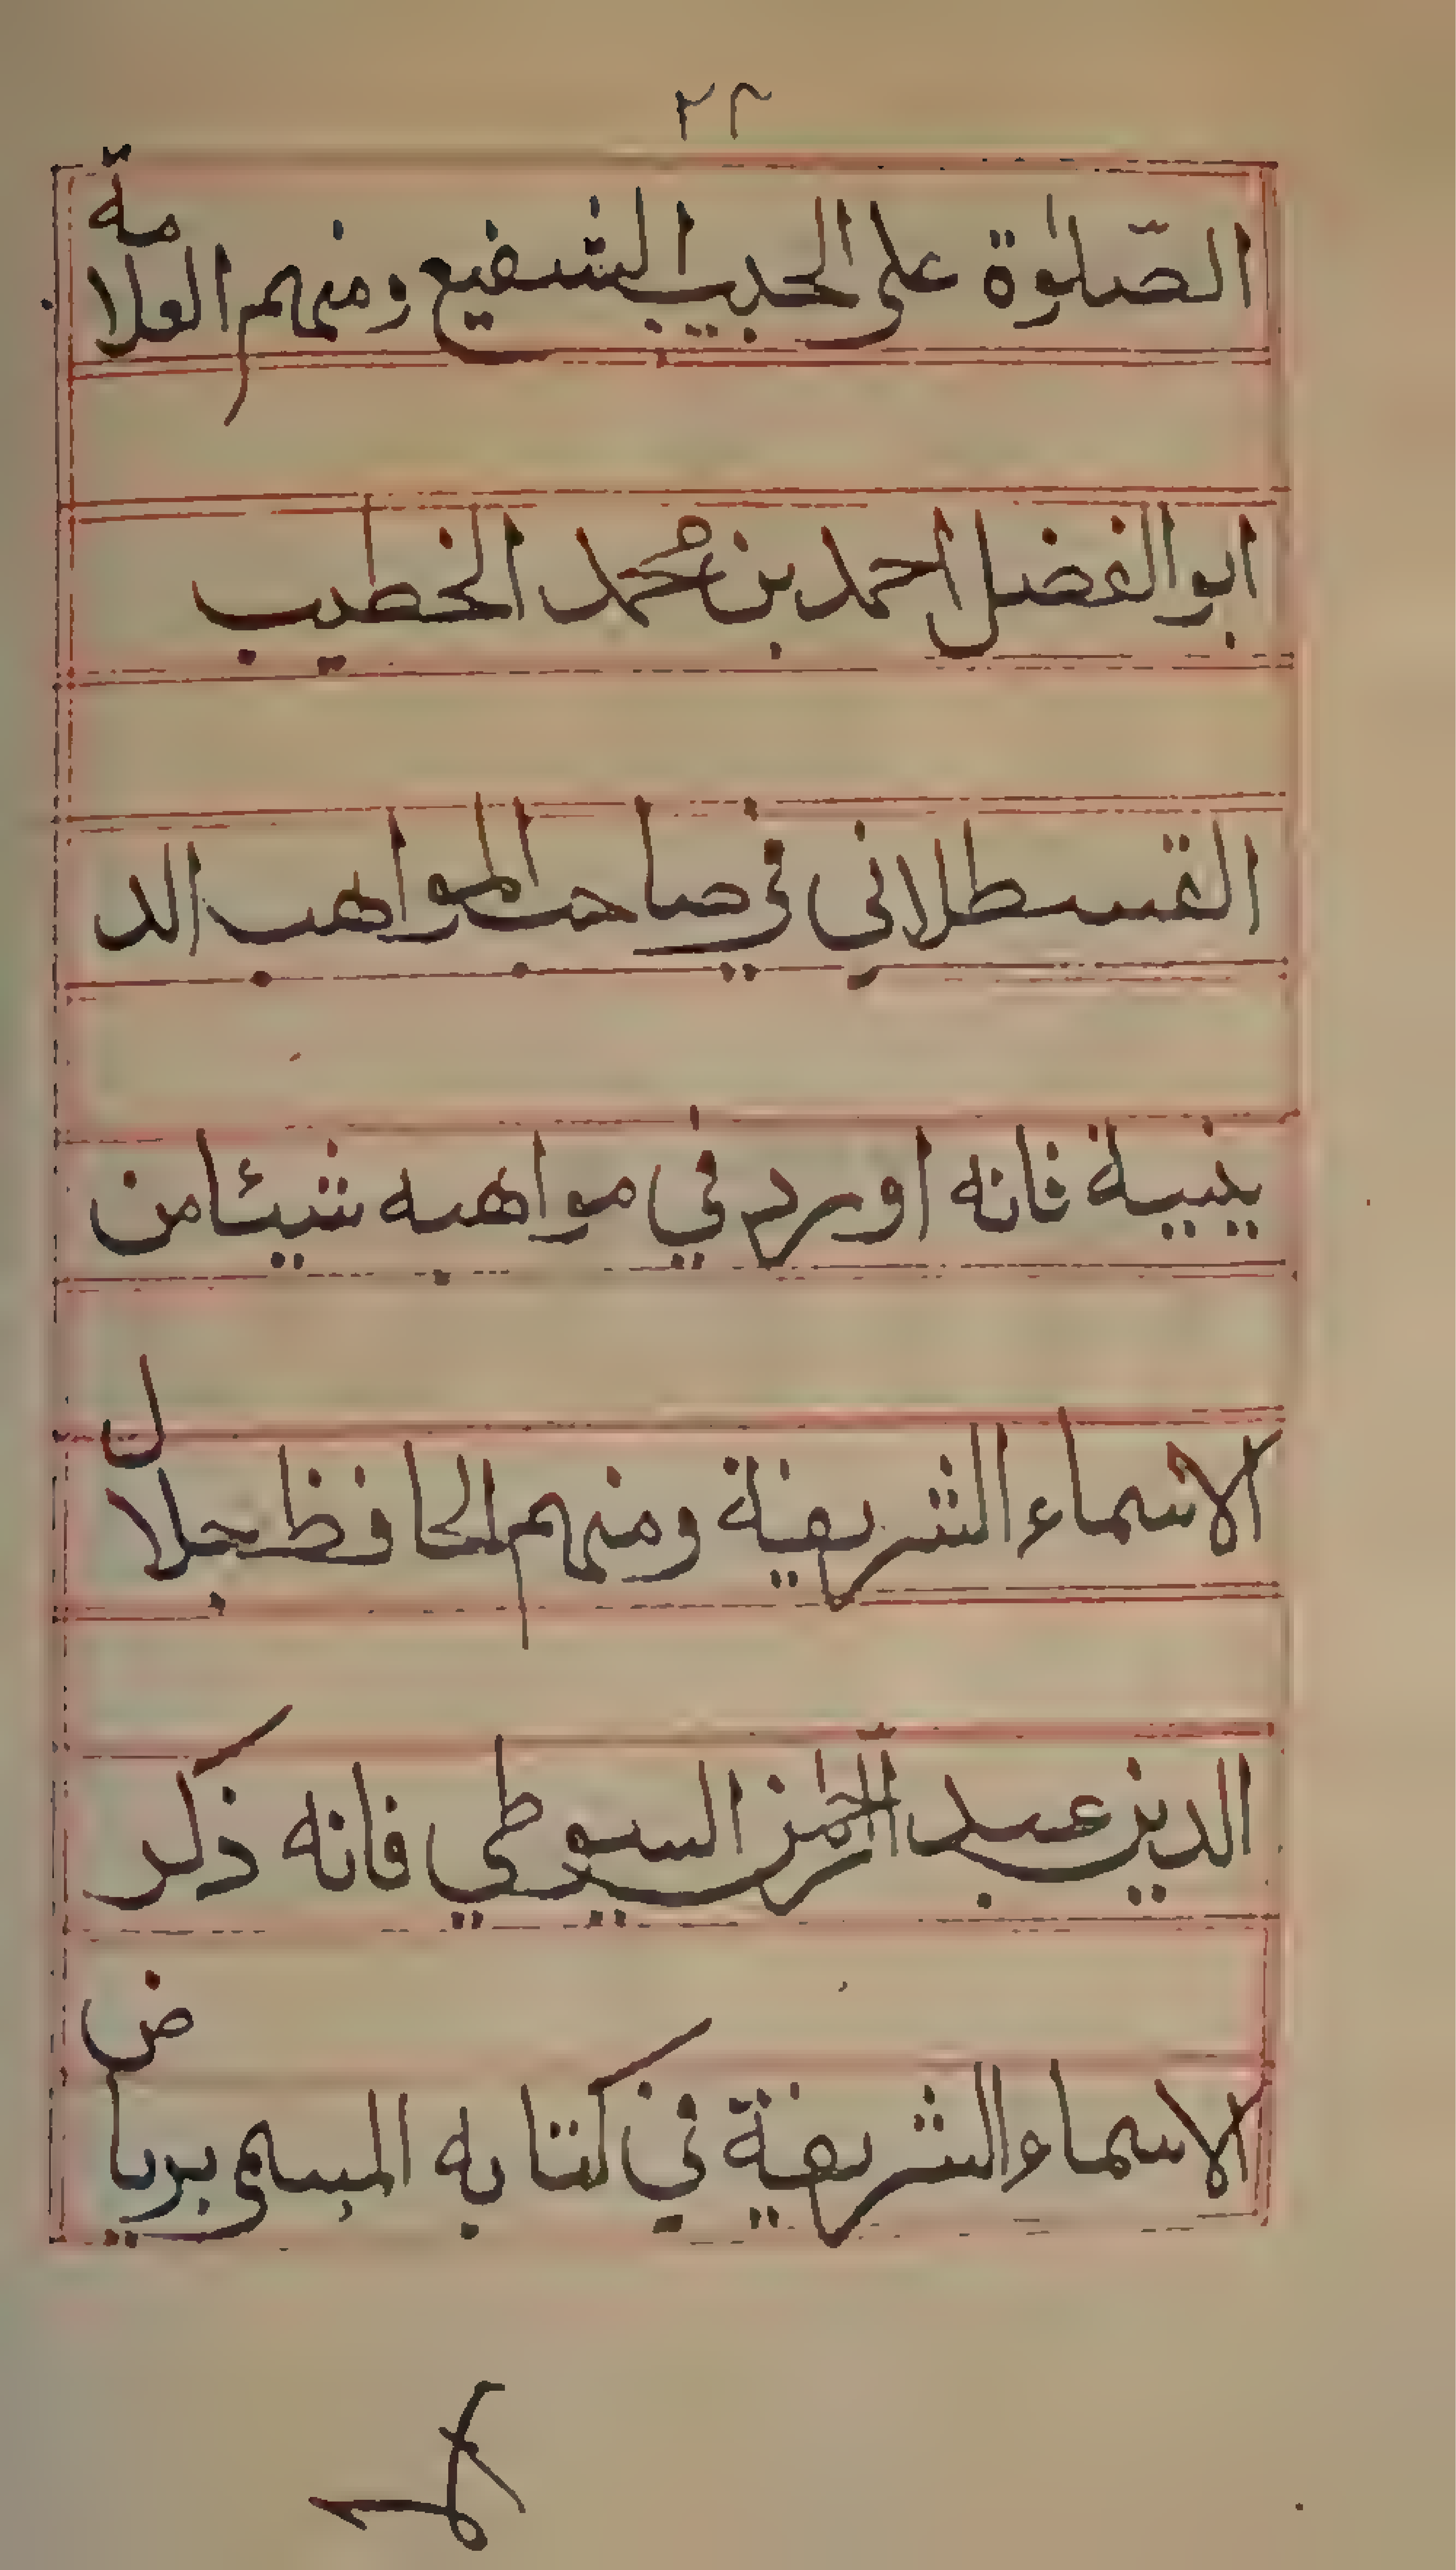 ٢٢
الصّلوٰة على الحبيب الشفيع ومنهم العلامة
ابو الفضل احمد بن محمد الخطيب
القسطلاني في صاحب المواهب الد
ينيية فانه اورد في مواهبه شيئا من
الاسماء الشريفة ومنهم الحافظ جلال
الدين عبد الرّحمٰن السيوطي فانه ذكر
الاسماء الشريفة في كتابه المسمى برياض